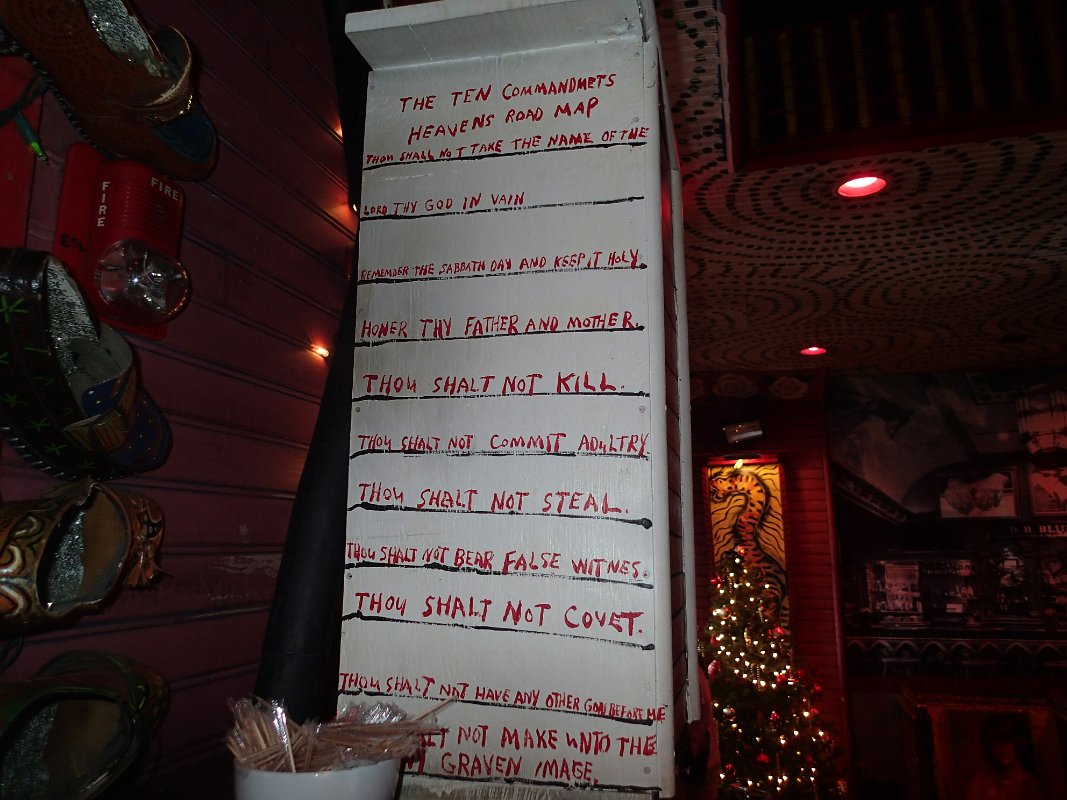 THE TEN COMMANDMETS
HEAVENS ROAD MAP
THOU SHALL NOT TAKE THE NAME OF THE
LORD THY GOD IN VAIN
REMEMBER THE SABBATH DAY AND KEEP IT HOLY.
HONER THY FATHER AND MOTHER.
THOU SHALT NOT KILL.
THOU SHALT NOT COMMIT ADULTRY
THOU SHALT NOT STEAL.
THOU SHALT NOT BEAR FALSE WITNES.
THOU SHALT NOT COVET.
THOU SHALT NOT HAVE ANY OTHER GODS BEFORE ME
NOT MAKE UNTO THE
GRAVEN IMAGE.
FIRE
FIRE